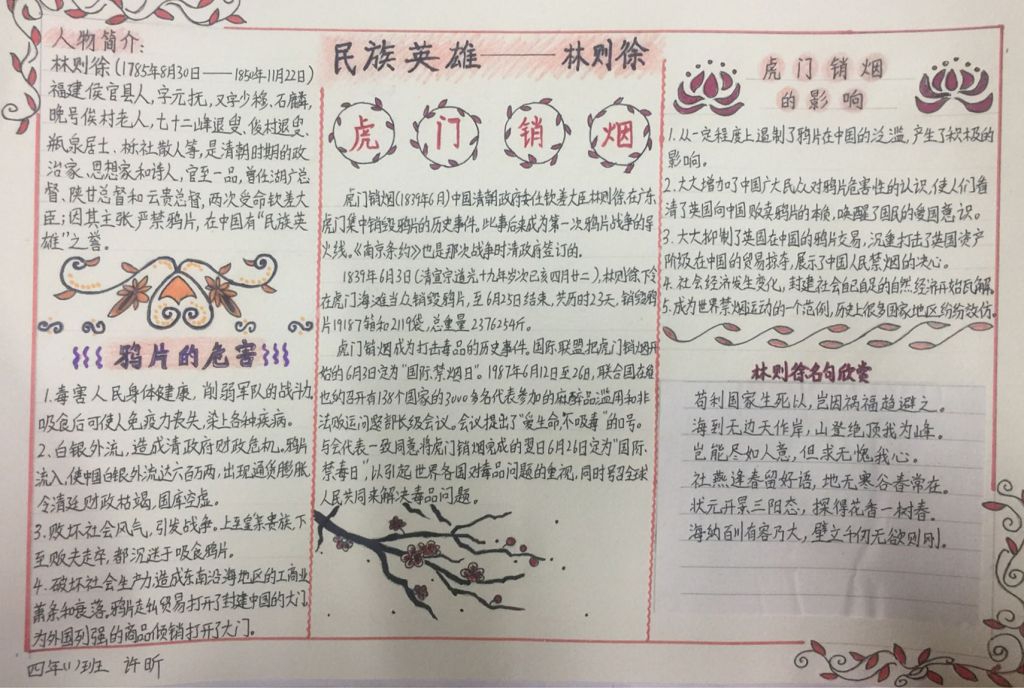 人物简介:
林则徐(1785年8月30日——1850年11月22日)
福建侯官县人,字元抚,又字少穆、石麟,
晚号俟村老人,七十二峰退叟、俟村退叟、
瓶泉居士、栎社散人等,是清朝时期的政
治家、思想家和诗人,官至一品,曾任湖广总
督、陕甘总督和云贵总督,两次受命钦差大
臣;因其主张严禁鸦片,在中国有“民族英
雄”之誉。
鸦片的危害
1.毒害人民身体健康,削弱军队的战斗力
吸食后可使人免疫力丧失,染上各种疾病。
2.白银外流,造成清政府财政危机。鸦片
流入,使中国白银外流达六百万两,出现通货膨胀,
令清廷财政枯竭,国库空虚。
3.败坏社会风气,引发战争。上至皇亲贵族,下
至贩夫走卒,都沉迷于吸食鸦片。
4.破坏社会生产力,造成东南沿海地区的工商业
萧条和衰落。鸦片走私贸易打开了封建中国的大门,
为外国列强的商品倾销打开了大门。
四年(1)班 许昕
民族英雄——林则徐
虎门销烟
虎门销烟(1839年6月)中国清朝政府委任钦差大臣林则徐在广东
虎门集中销毁鸦片的历史事件。此事后来成为第一次鸦片战争的导
火线。《南京条约》也是那次战争时清政府签订的。
1839年6月3日(清宣宗道光十九年岁次己亥四月廿二),林则徐下令
在虎门海滩当众销毁鸦片,至6月25日结束,共历时23天,销毁鸦
片19187箱和2119袋,总重量2376254斤。
虎门销烟成为打击毒品的历史事件。国际联盟把虎门销烟开
始的6月3日定为“国际禁烟日”。1987年6月12日至26日,联合国在维
也纳召开有138个国家的3000多名代表参加的麻醉品滥用和非
法贩运问题部长级会议。会议提出了“爱生命,不吸毒”的口号。
与会代表一致同意将虎门销烟完成的翌日6月26日定为“国际
禁毒日”,以引起世界各国对毒品问题的重视,同时号召全球
人民共同来解决毒品问题。
虎门销烟
的影响
1.从一定程度上遏制了鸦片在中国的泛滥,产生了积极的
影响。
2.大大增加了中国广大民众对鸦片危害性的认识,使人们看
清了英国向中国贩卖鸦片的本质,唤醒了国民的爱国意识。
3.大大抑制了英国在中国的鸦片交易,沉重打击了英国资产
阶级在中国的贸易掠夺,展示了中国人民禁烟的决心。
4.社会经济发生变化,封建社会自己自足的自然经济开始瓦解。
5.成为世界禁烟运动的一个范例,历史上很多国家地区纷纷效仿。
林则徐名句欣赏
苟利国家生死以,岂因祸福趋避之。
海到无边天作岸,山登绝顶我为峰。
岂能尽如人意,但求无愧我心。
社燕逢春留好语,地无寒谷春常在。
状元开景三阳态,探得花香一树春。
海纳百川有容乃大,壁立千仞无欲则刚。